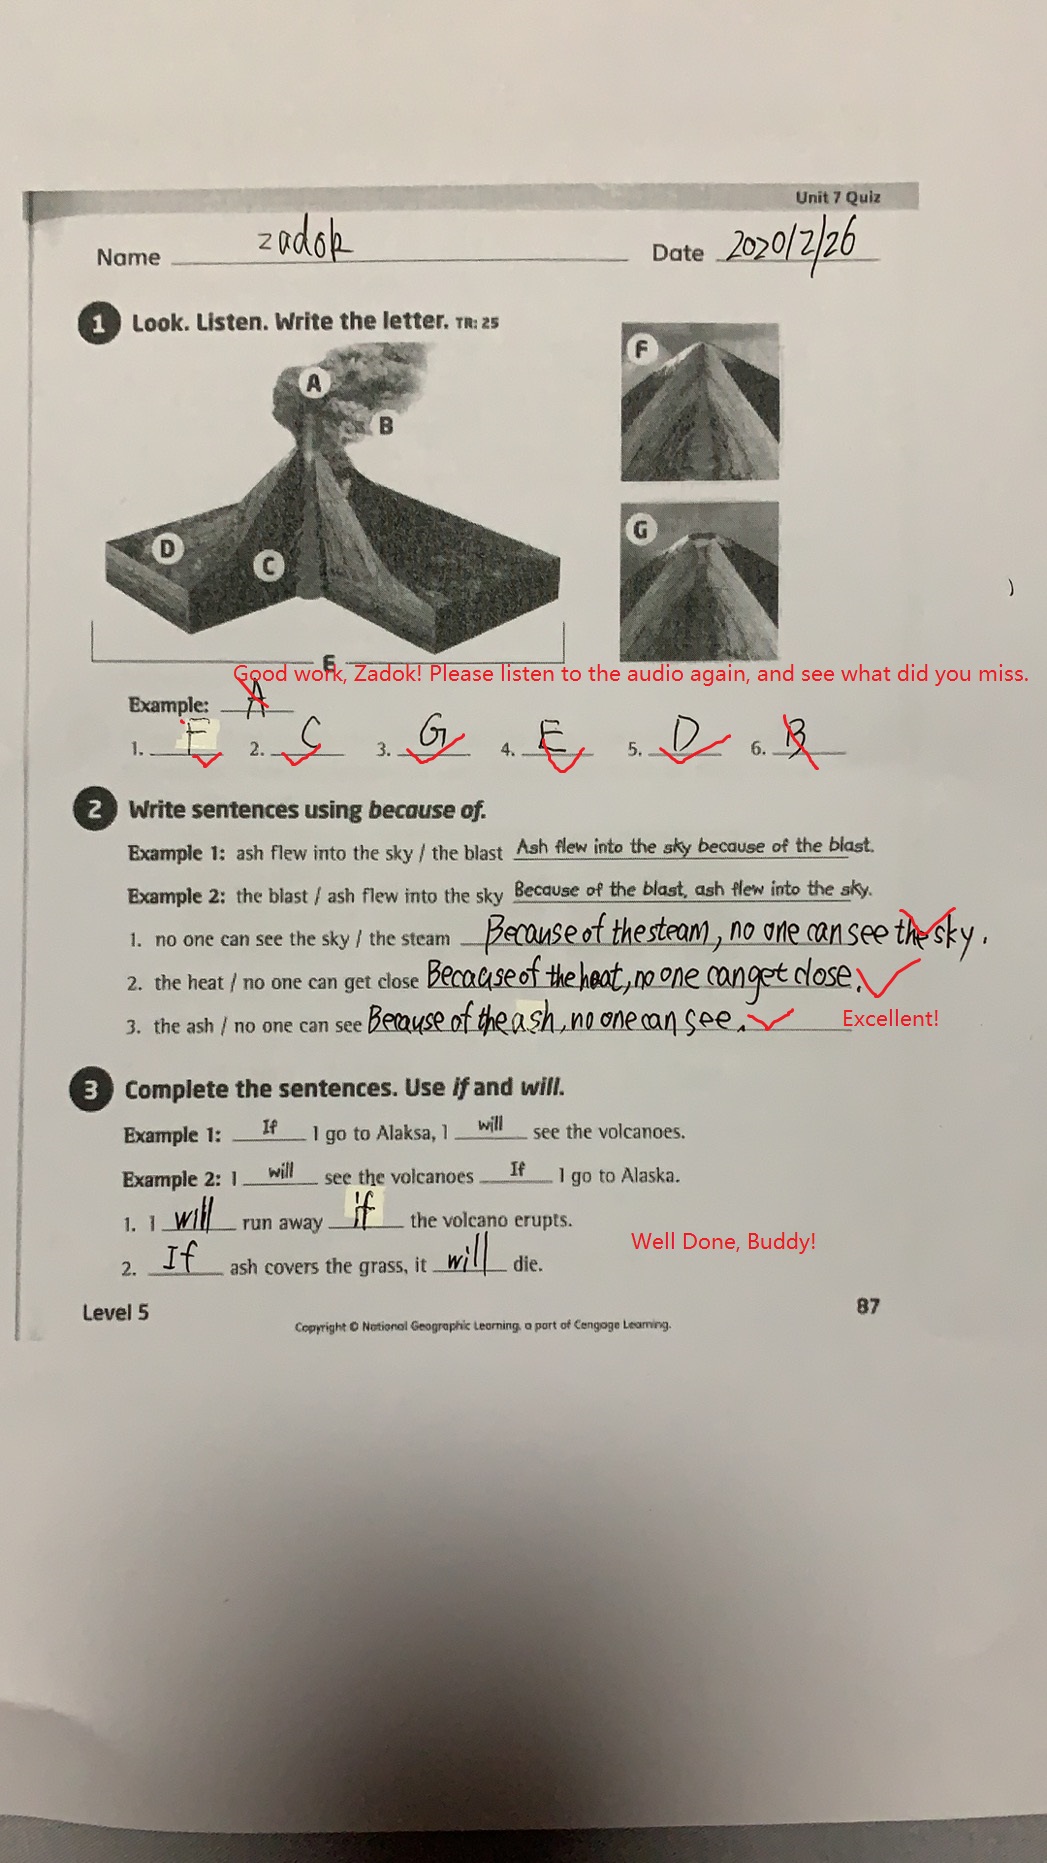 Unit 7 Quiz
Name zadok Date 2020/2/26
1 Look. Listen. Write the letter. TR: 25
A
B
C
D
E
F
G
Good work, Zadok! Please listen to the audio again, and see what did you miss.
Example: A
1. F 2. C 3. G 4. E 5. D 6. B
2 Write sentences using because of.
Example 1: ash flew into the sky / the blast Ash flew into the sky because of the blast.
Example 2: the blast / ash flew into the sky Because of the blast, ash flew into the sky.
1. no one can see the sky / the steam Because of the steam, no one can see the sky.
2. the heat / no one can get close Because of the heat, no one can get close.
3. the ash / no one can see Because of the ash, no one can see. Excellent!
3 Complete the sentences. Use if and will.
Example 1: If I go to Alaksa, I will see the volcanoes.
Example 2: I will see the volcanoes If I go to Alaska.
1. I will run away if the volcano erupts.
Well Done, Buddy!
2. If ash covers the grass, it will die.
Level 5 87
Copyright © National Geographic Learning, a part of Cengage Learning.